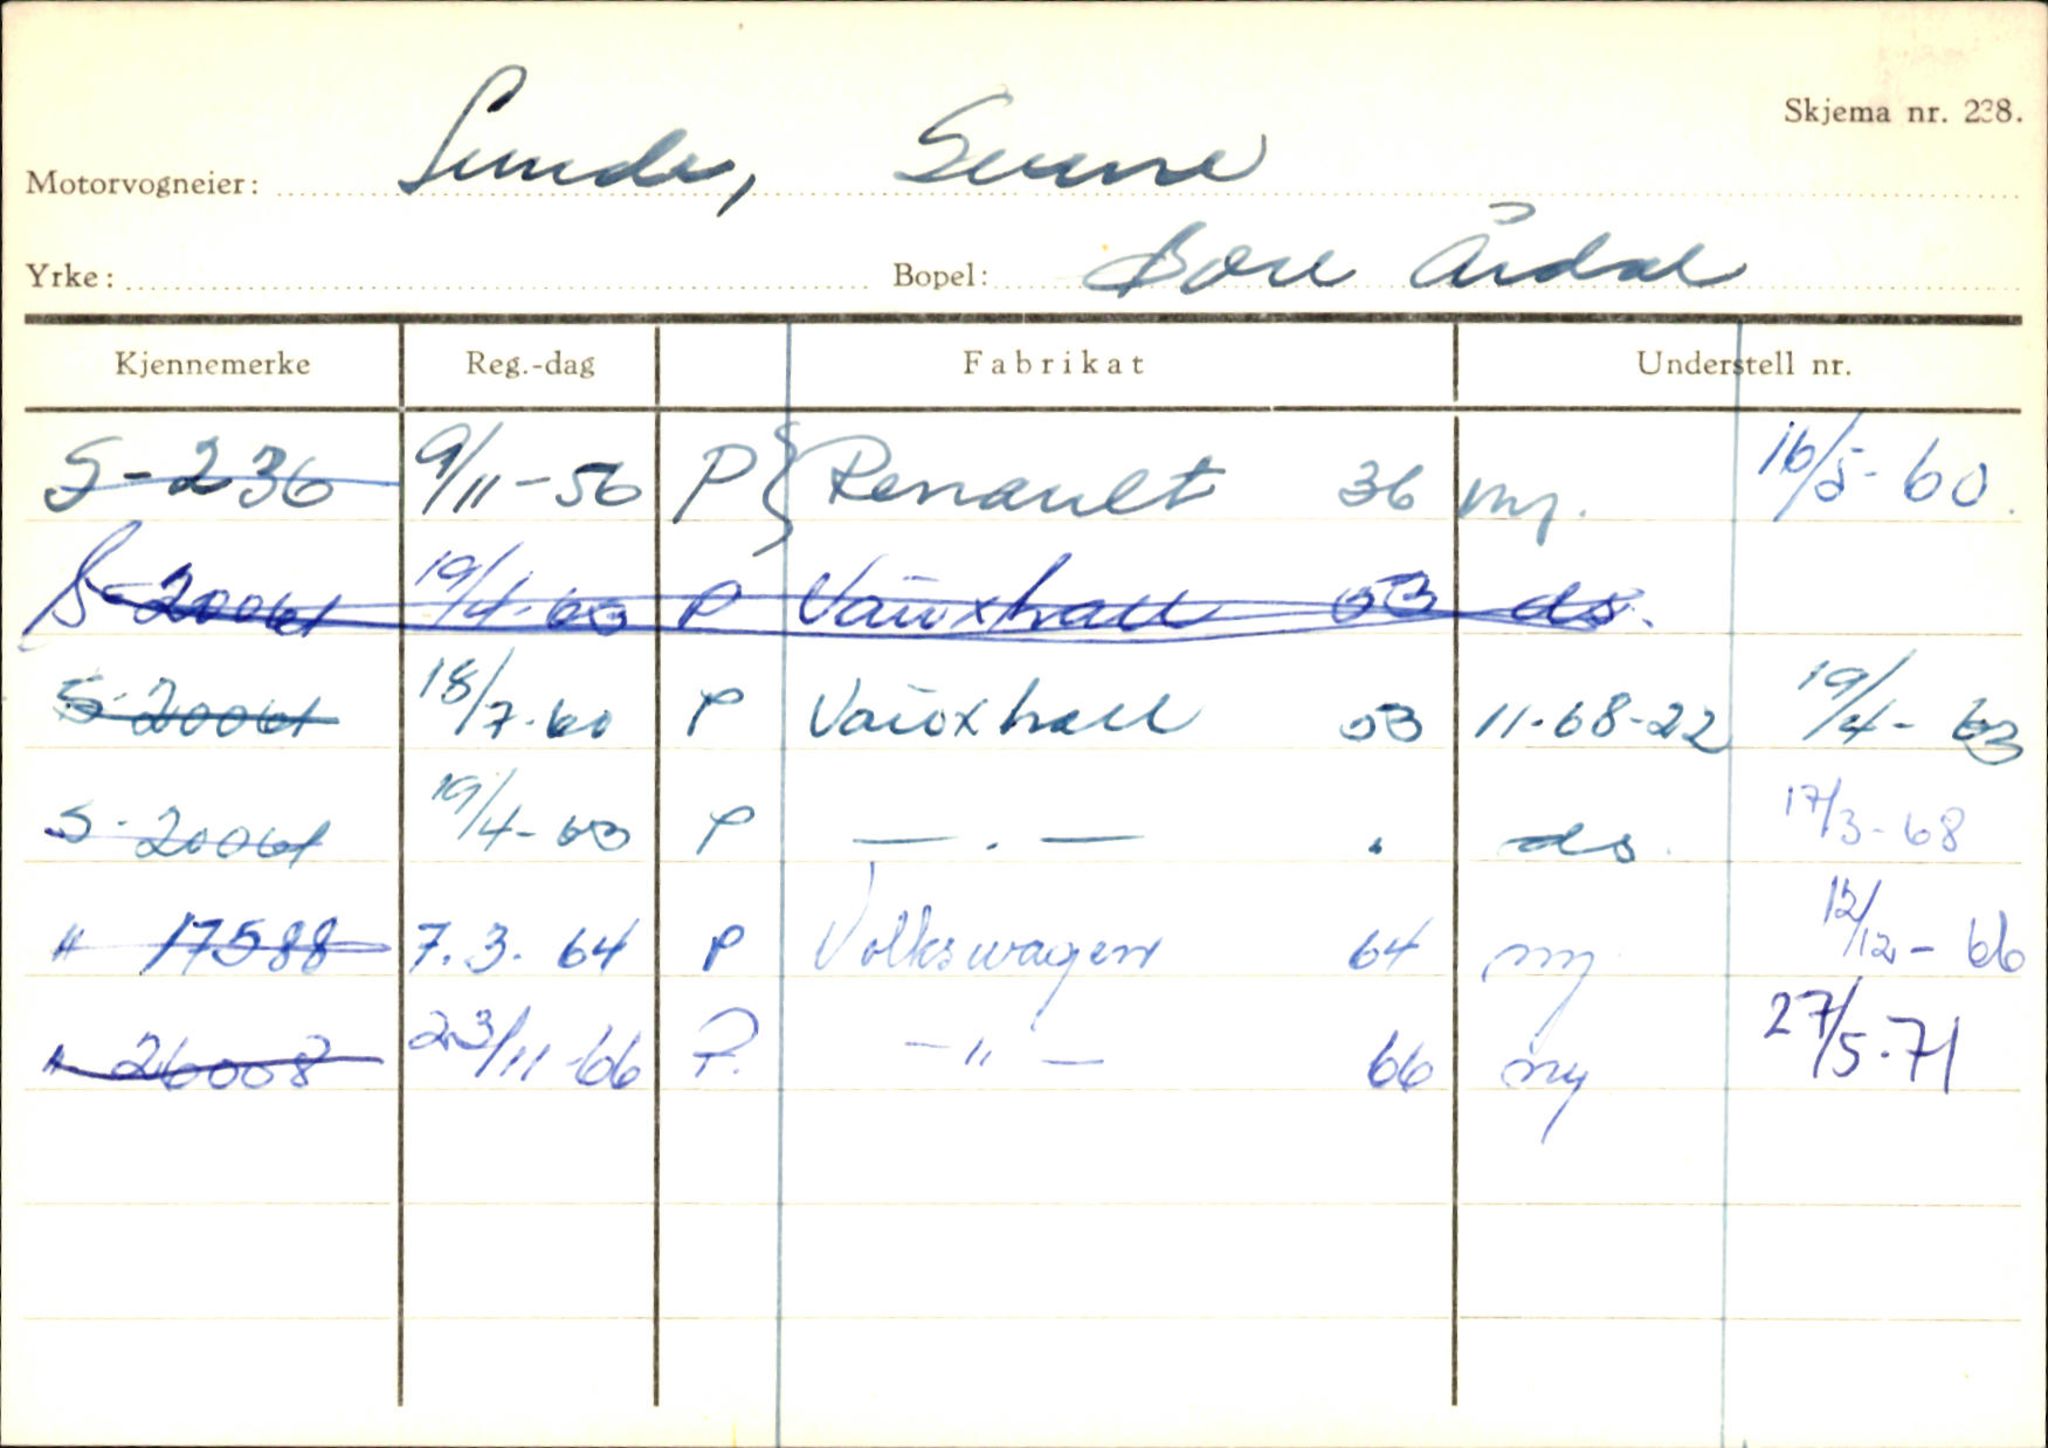 Skjema nr. 238.
Motorvogneier: Sunde, Sverre
Yrke: Bopel: Øvre Årdal
Kjennemerke Reg.-dag Fabrikat Understell nr.
S-236 9/11-56 P Renault 36 ny. 16/5-60.
S-20061 19/4-63 P Vauxhall 53 ds.
S-20061 18/7-60 P Vauxhall 53 11-68-22 19/4-63
S-20061 19/4-63 P —.— . ds. 17/3-68
" 17588 7.3.64 P Volkswagen 64 ny 12/12-66
" 26008 23/11-66 P. —"— 66 ny 27/5.71